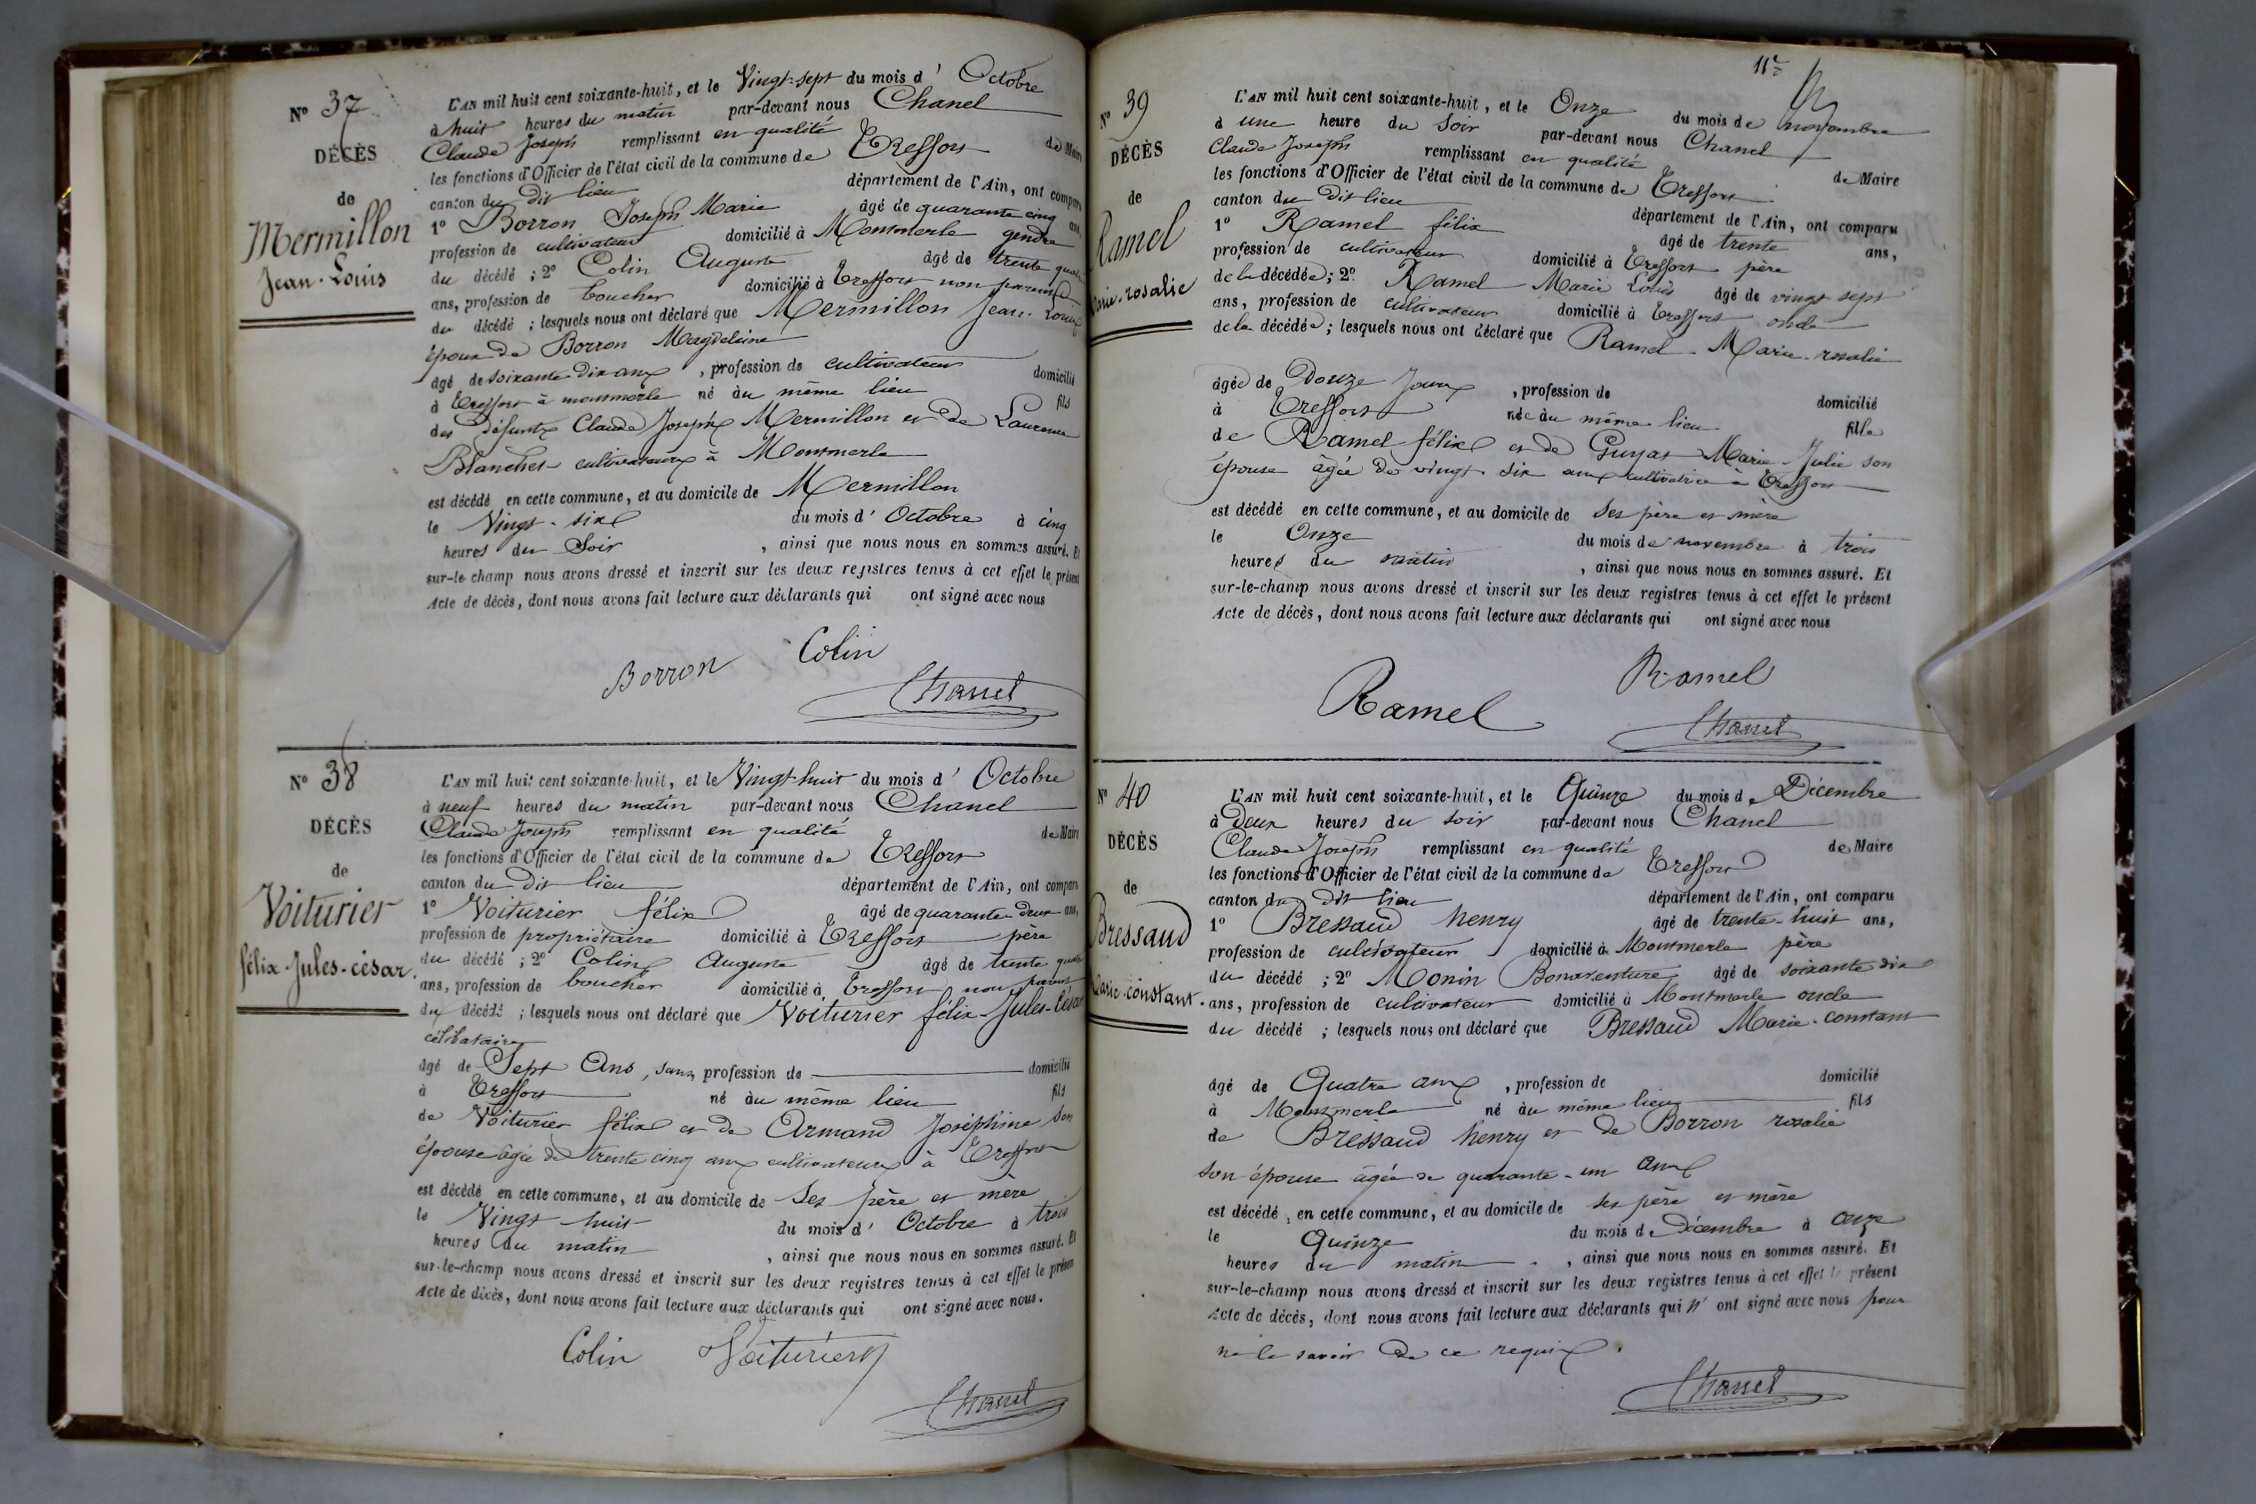 Nº 37
DÉCÈS
de
Mermillon
Jean-Louis
L'AN mil huit cent soixante-huit, et le Vingt-sept du mois d' Octobre
à huit heures du matin par-devant nous Chanel
Claude Joseph remplissant en qualité de Maire
les fonctions d'Officier de l'état civil de la commune de Treffort
canton du dit lieu département de l'Ain, ont comparu
1º Borron Joseph Marie âgé de quarante cinq ans,
profession de cultivateur domicilié à Montmerle gendre
du décédé ; 2º Colin Auguste âgé de trente quatre
ans, profession de boucher domicilié à Treffort non parent
du décédé ; lesquels nous ont déclaré que Mermillon Jean-Louis
époux de Borron Magdeleine
âgé de soixante-dix ans , profession de cultivateur domicilié
à Treffort à montmerle né au même lieu fils
des défunts Claude Joseph Mermillon et de Laurence
Blanchet cultivateurs à Montmerle
est décédé en cette commune, et au domicile de Mermillon
le Vingt-six du mois d' Octobre à cinq
heures du Soir , ainsi que nous nous en sommes assuré. Et
sur-le-champ nous avons dressé et inscrit sur les deux registres tenus à cet effet le présent
Acte de décès, dont nous avons fait lecture aux déclarants qui ont signé avec nous
Borron Colin
Chanel
Nº 38
DÉCÈS
de
Voiturier
félix-Jules-césar.
L'AN mil huit cent soixante-huit, et le Vingt-huit du mois d' Octobre
à neuf heures du matin par-devant nous Chanel
Claude Joseph remplissant en qualité de Maire
les fonctions d'Officier de l'état civil de la commune de Treffort
canton du dit lieu département de l'Ain, ont comparu
1º Voiturier félix âgé de quarante-deux ans,
profession de propriétaire domicilié à Treffort père
du décédé ; 2º Colin Auguste âgé de trente quatre
ans, profession de boucher domicilié à Treffort non parent
du décédé ; lesquels nous ont déclaré que Voiturier félix-Jules-César
célibataire
âgé de Sept Ans, sans profession de domicilié
à Treffort né au même lieu fils
de Voiturier félix et de Armand Joséphine son
épouse âgée de trente cinq ans cultivateurs à Treffort
est décédé en cette commune, et au domicile de Ses père et mère
le Vingt-huit du mois d' Octobre à trois
heures du matin , ainsi que nous nous en sommes assuré. Et
sur-le-champ nous avons dressé et inscrit sur les deux registres tenus à cet effet le présent
Acte de décès, dont nous avons fait lecture aux déclarants qui ont signé avec nous.
Colin Voiturier
Chanel
Nº 39
DÉCÈS
de
Ramel
Marie-rosalie
L'AN mil huit cent soixante-huit, et le Onze du mois de novembre
à une heure du Soir par-devant nous Chanel
Claude Joseph remplissant en qualité de Maire
les fonctions d'Officier de l'état civil de la commune de Treffort
canton du Dit lieu département de l'Ain, ont comparu
1º Ramel félix âgé de trente ans,
profession de cultivateur domicilié à Treffort père
de la décédée ; 2º Ramel Marie Louis âgé de vingt-sept
ans, profession de cultivateur domicilié à Treffort oncle
de la décédée ; lesquels nous ont déclaré que Ramel Marie-rosalie
âgée de Douze Jours , profession de domicilié
à Treffort née au même lieu fille
de Ramel félix et de Guyat Marie-Julie son
épouse âgée de vingt-six ans cultivatrice à Treffort
est décédé en cette commune, et au domicile de Ses père et mère
le Onze du mois de novembre à trois
heures du matin , ainsi que nous nous en sommes assuré. Et
sur-le-champ nous avons dressé et inscrit sur les deux registres tenus à cet effet le présent
Acte de décès, dont nous avons fait lecture aux déclarants qui ont signé avec nous
Ramel Ramel
Chanel
Nº 40
DÉCÈS
de
Bressaud
Marie-constant.
L'AN mil huit cent soixante-huit, et le Quinze du mois de Décembre
à Deux heures du soir par-devant nous Chanel
Claude Joseph remplissant en qualité de Maire
les fonctions d'Officier de l'état civil de la commune de Treffort
canton du dit lieu département de l'Ain, ont comparu
1º Bressaud henry âgé de trente-huit ans,
profession de cultivateur domicilié à Montmerle père
du décédé ; 2º Monin Bonaventure âgé de soixante dix
ans, profession de cultivateur domicilié à Montmerle oncle
du décédé ; lesquels nous ont déclaré que Bressaud Marie-constant
âgé de Quatre ans , profession de domicilié
à Montmerle né au même lieu fils
de Bressaud henry et de Borron rosalie
son épouse âgée de quarante-un ans
est décédé, en cette commune, et au domicile de ses père et mère
le Quinze du mois de Décembre à onze
heures du matin , ainsi que nous nous en sommes assuré. Et
sur-le-champ nous avons dressé et inscrit sur les deux registres tenus à cet effet le présent
Acte de décès, dont nous avons fait lecture aux déclarants qui n'ont signé avec nous pour
ne le savoir de ce requis.
Chanel